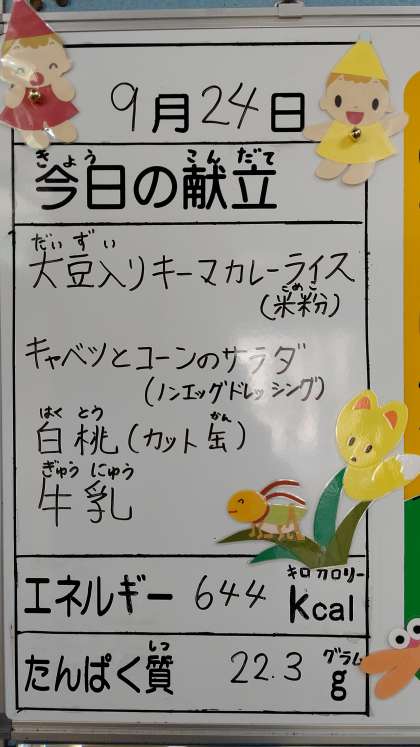 9月24日
きょう こんだて
今日の献立
だい ずい
大豆入りキーマカレーライス
こめこ
(米粉)
キャベツとコーンのサラダ
(ノンエッグドレッシング)
はく とう かん
白桃(カット缶)
ぎゅう にゅう
牛乳
キロカロリー
エネルギー 644 Kcal
しつ グラム
たんぱく質 22.3 g